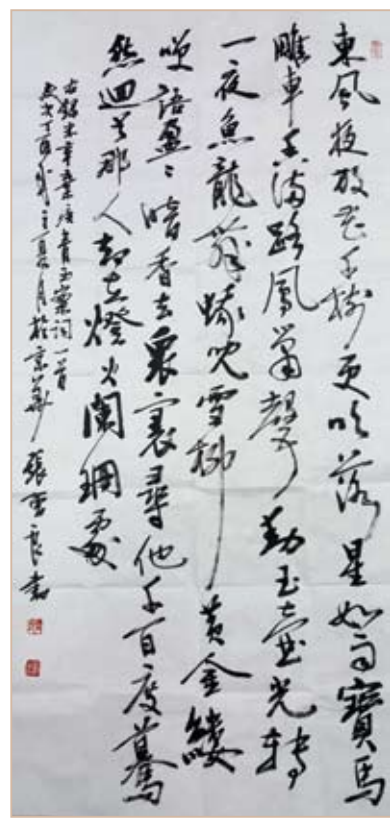 東風夜放花千樹更吹落星如雨寶馬
雕車香滿路鳳簫聲動玉壺光轉
一夜魚龍舞蛾兒雪柳黃金縷
笑語盈〻暗香去衆裏尋他千百度驀
然迴首那人却在燈火闌珊處
右錄宋辛棄疾青玉案詞一首
歲次丁酉夏月於京華張良書